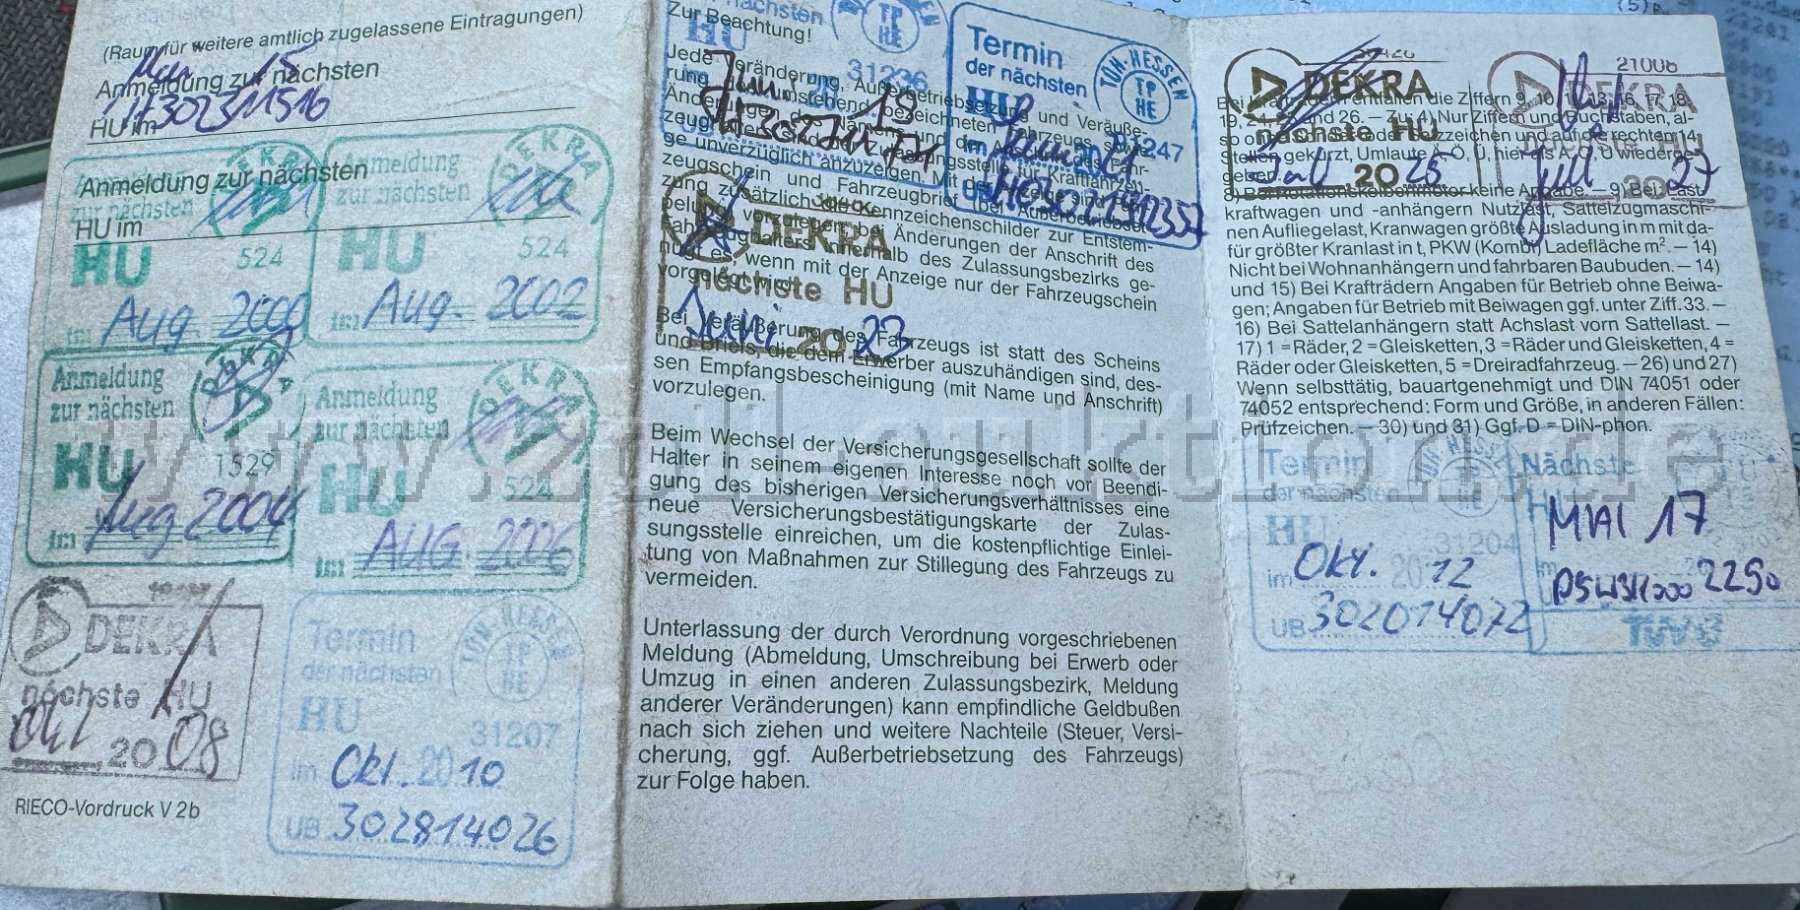 (Raum für weitere amtlich zugelassene Eintragungen)
Anmeldung zur nächsten
HU im
Anmeldung zur nächsten
HU im
Anmeldung
zur nächsten
HU
524
im Aug. 2000
DEKRA
Anmeldung
zur nächsten
HU
524
im Aug. 2002
DEKRA
Anmeldung
zur nächsten
HU
1529
im Aug 2004
DEKRA
Anmeldung
zur nächsten
HU
524
im AUG. 2006
DEKRA
DEKRA
nächste HU
Okt 2008
Termin
der nächsten
HU
31207
im Okt. 2010
UB 302814026
TÜH-HESSEN
TP
HE
RIECO-Vordruck V 2b
nächsten
HU
31236
TP
HE
Juni 19
Termin
der nächsten
HU
31247
TÜH-HESSEN
TP
HE
DEKRA
nächste HU
Juni 2023
Zur Beachtung!
Jede Veränderung, Außerbetriebsetzung und Veräuße-
rung umstehend bezeichneten Fahrzeugs,
Änderungen des Namens und der Anschrift des Fahr-
zeughalters sind der Zulassungsstelle für Kraftfahrzeu-
ge unverzüglich anzuzeigen. Mit der Anzeige sind Fahr-
zeugschein und Fahrzeugbrief (bei Außerbetriebset-
zung zusätzlich die Kennzeichenschilder zur Entstem-
pelung) vorzulegen, bei Änderungen der Anschrift des
Fahrzeughalters innerhalb des Zulassungsbezirks ge-
nügt es, wenn mit der Anzeige nur der Fahrzeugschein
vorgelegt wird.
Bei Veräußerung des Fahrzeugs ist statt des Scheins
und Briefs, die dem Erwerber auszuhändigen sind, des-
sen Empfangsbescheinigung (mit Name und Anschrift)
vorzulegen.
Beim Wechsel der Versicherungsgesellschaft sollte der
Halter in seinem eigenen Interesse noch vor Beendi-
gung des bisherigen Versicherungsverhältnisses eine
neue Versicherungsbestätigungskarte der Zulas-
sungsstelle einreichen, um die kostenpflichtige Einlei-
tung von Maßnahmen zur Stillegung des Fahrzeugs zu
vermeiden.
Unterlassung der durch Verordnung vorgeschriebenen
Meldung (Abmeldung, Umschreibung bei Erwerb oder
Umzug in einen anderen Zulassungsbezirk, Meldung
anderer Veränderungen) kann empfindliche Geldbußen
nach sich ziehen und weitere Nachteile (Steuer, Versi-
cherung, ggf. Außerbetriebsetzung des Fahrzeugs)
zur Folge haben.
DEKRA
nächste HU
2025
21006
DEKRA
nächste HU
Juli 2027
Bei Krafträdern entfallen die Ziffern 9, 10, 13, 16, 17, 18,
19, 24, 25 und 26. – Zu 4) Nur Ziffern und Buchstaben, al-
so ohne Satz- oder Sonderzeichen und auf die rechten 14
Stellen gekürzt, Umlaute Ä, Ö, Ü, hier als A, O, U wiederge-
geben.
8) Bei Rotationskolbenmotor keine Angabe. – 9) Bei Last-
kraftwagen und -anhängern Nutzlast, Sattelzugmaschi-
nen Aufliegelast, Kranwagen größte Ausladung in m mit da-
für größter Kranlast in t, PKW (Kombi) Ladefläche m². – 14)
Nicht bei Wohnanhängern und fahrbaren Baubuden. – 14)
und 15) Bei Krafträdern Angaben für Betrieb ohne Beiwa-
gen; Angaben für Betrieb mit Beiwagen ggf. unter Ziff. 33. –
16) Bei Sattelanhängern statt Achslast vorn Sattellast. –
17) 1 = Räder, 2 = Gleisketten, 3 = Räder und Gleisketten, 4 =
Räder oder Gleisketten, 5 = Dreiradfahrzeug. – 26) und 27)
Wenn selbsttätig, bauartgenehmigt und DIN 74051 oder
74052 entsprechend: Form und Größe, in anderen Fällen:
Prüfzeichen. – 30) und 31) Ggf. D = DIN-phon.
Termin
der nächsten
HU
31204
im Okt. 2012
UB 302014072
TÜH-HESSEN
TP
HE
Nächste
HU
MAI 17
im
www.zoll-auktion.de